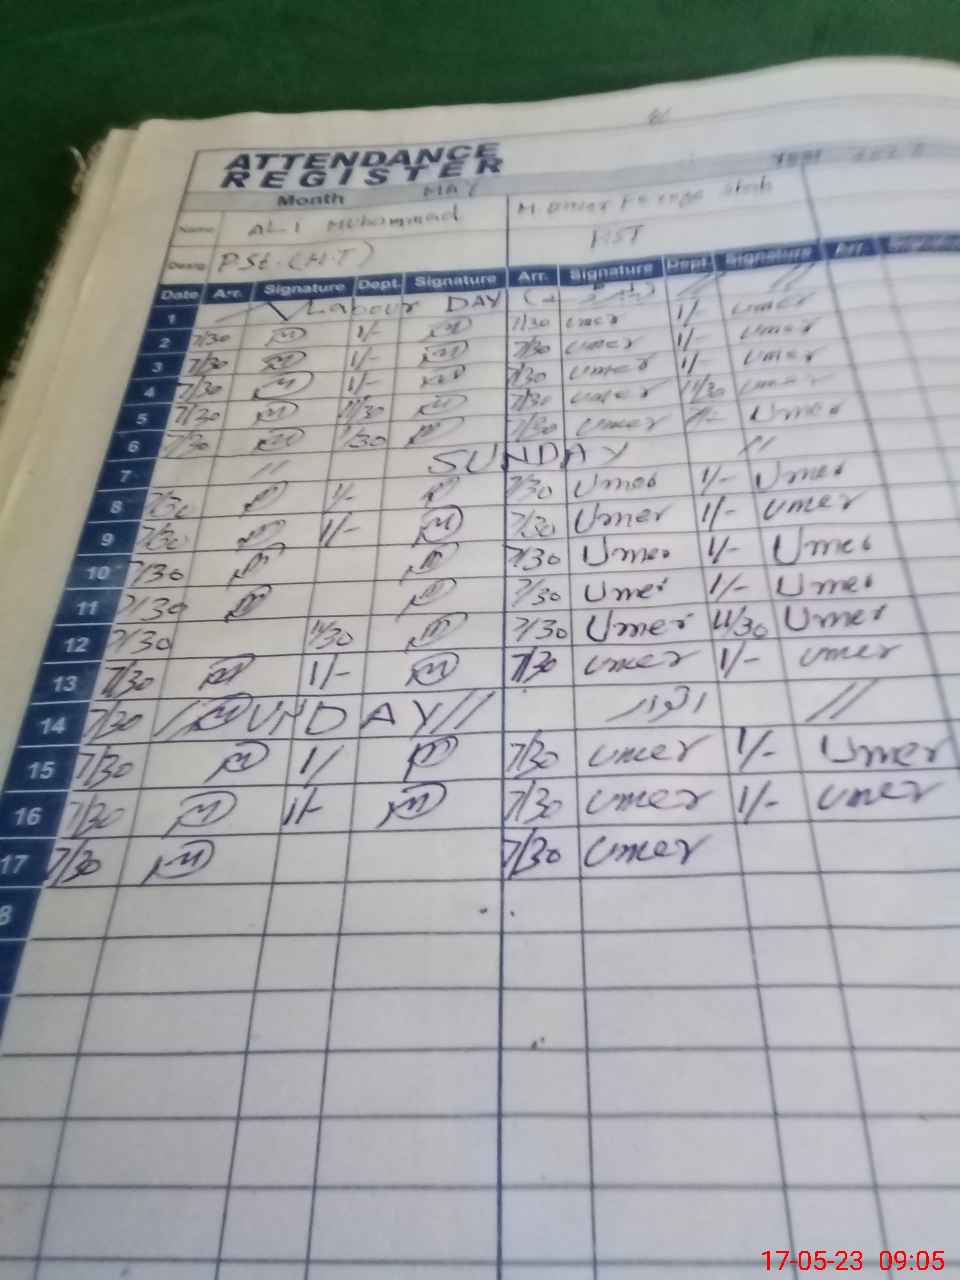 ATTENDANCE
REGISTER
Month MAY Year
Name ALI Muhammad M. Umer
Desig. PST. (H.T)
Date Arr. Signature Dept. Signature Arr. Signature Dept. Signature Arr. Signature
1 Labour DAY // //
2 7/30 1/- 7/30 umer 1/- umer
3 7/30 1/- 7/30 umer 1/- umer
4 7/30 1/- 7/30 umer 1/- umer
5 7/30 11/30 7/30 umer 11/30 umer
6 7/30 7/30 umer Umer
7 // SUNDAY //
8 7/30 1/- 7/30 Umer 1/- Umer
9 7/30 1/- 7/30 Umer 1/- umer
10 7/30 7/30 Umer 1/- Umer
11 7/30 7/30 Umer 1/- Umer
12 7/30 11/30 7/30 Umer 11/30 Umer
13 7/30 1/- 7/30 umer 1/- umer
14 7/30 // SUNDAY // اتوار //
15 7/30 1/ 7/30 umer 1/- Umer
16 7/30 1/- 7/30 umer 1/- umer
17 7/30 7/30 umer
8
17-05-23 09:05